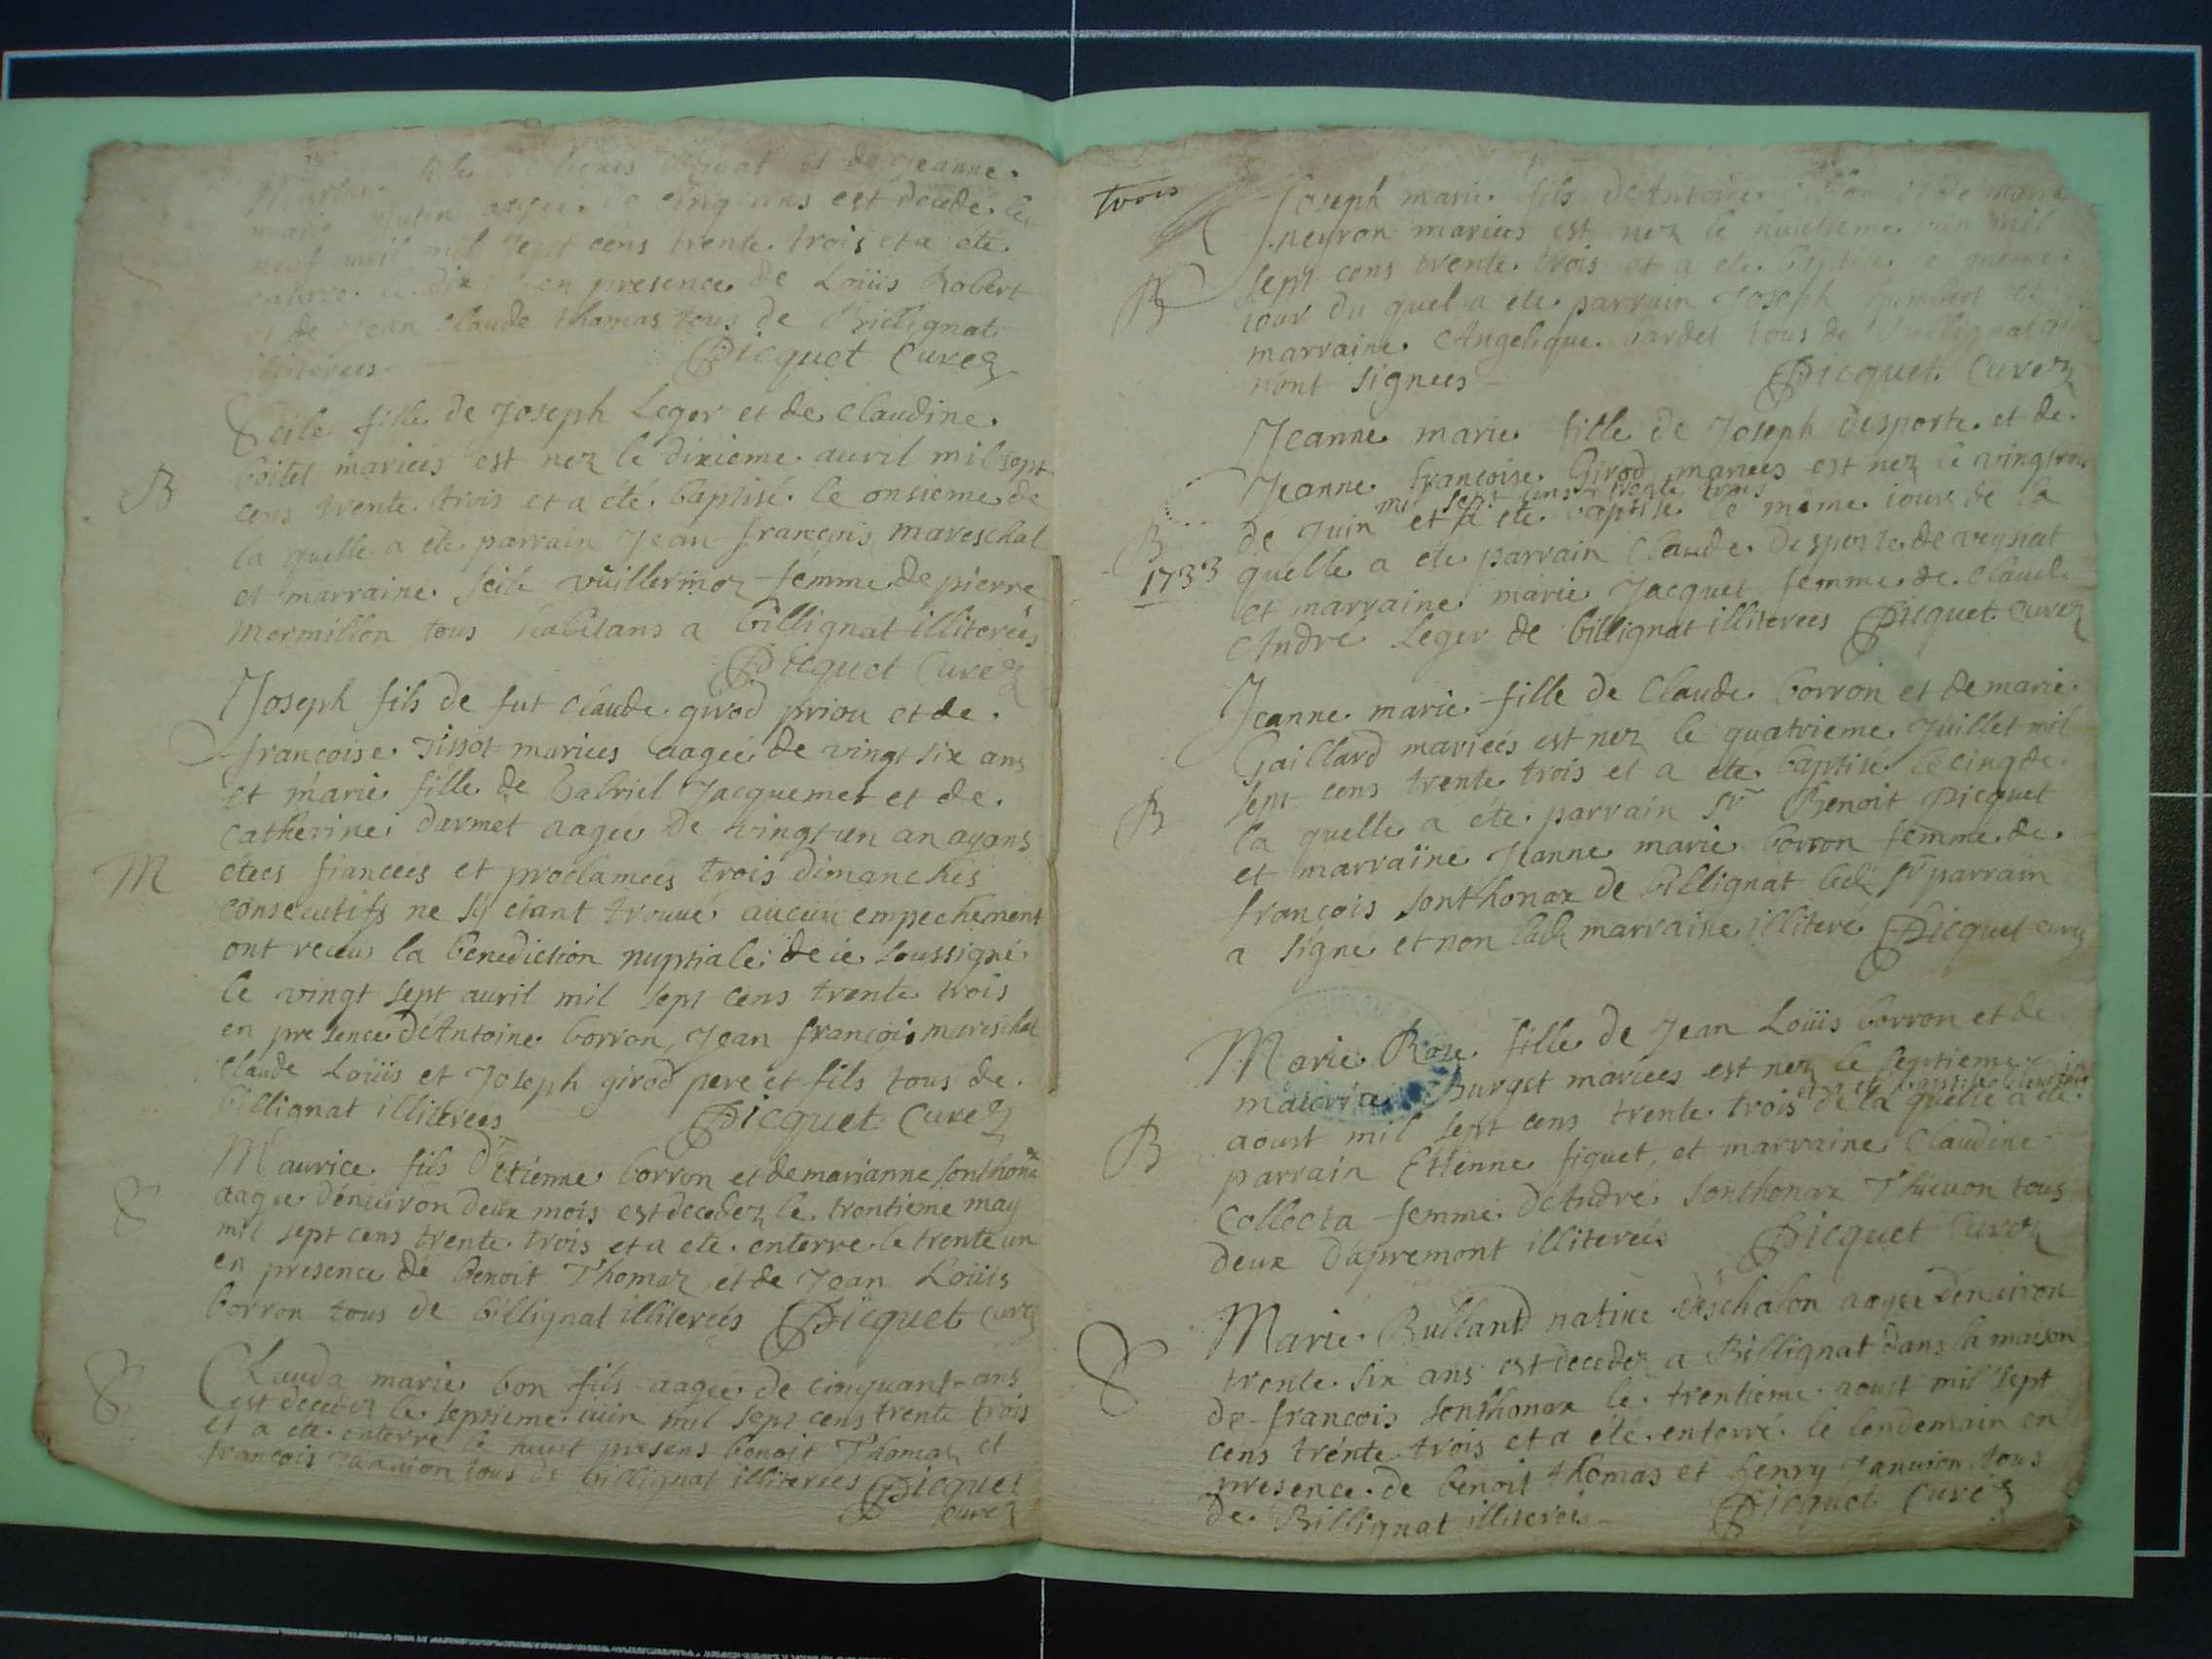 fille de et de Jeanne
marie aagée de cinq ans est decede le
neuf auril mil sept cens trente trois et a ete
enterre le dix en presence de Loüis Robert
et de Jean Claude thomas tous de Billignat
illiterees
Picquet Curez
Seile fille de Joseph Leger et de Claudine
B
boitet mariees est nez le dixieme auril mil sept
cens trente trois et a été baptisé le onsieme de
la quelle a ete parrain Jean francois mareschal
et marraine Seile vüillermoz femme de pierre
mermillon tous habitans a billignat illiterées
Picquet Curez
Joseph fils de fut Claude girod priou et de
francoise Tissot mariees aagée de vingt six ans
et marie fille de Gabriel Jacquemet et de
Catherine darmet aagee de vingt un an ayans
M
etees fiancees et proclamees trois dimanches
consecutifs ne sy etant trouué aucun empechement
ont receu la benediction nuptiale de ie soussigné
le vingt sept auril mil sept cens trente trois
en presence d'Antoine borron, Jean francois mareschal
Claude Loüis et Joseph girod pere et fils tous de
billignat illiterees
Picquet Curez
Maurice fils d'etienne borron et de marianne sonthonax
S
aagee d'enuiron deux mois est decedez le trentieme may
mil sept cens trente trois et a ete enterre le trente un
en presence de benoit Thomaz et de Jean Loüis
borron tous de billignat illiterées Picquet Curez
S
Clauda marie bon fils aagee de cinquant ans
est decedez le septieme iuin mil sept cens trente trois
et a ete enterré le huict presens benoit Thomaz et
francois Januion tous de billignat illiterees Picquet
Curez
trois
Joseph marie fils d'Antoine et de marie
neyron mariees est nez le huictieme iuin mil
B
sept cens trente trois et a ete baptise le meme
iour du quel a ete parrain Joseph humbert et
marraine Angelique tous de billignat qui
n'ont signees
Picquet Curez
Jeanne marie fille de Joseph desporte et de
Jeanne francoise Girod mariees est nez le vingtrois
mil sept cens trente trois
B
de Juin et a ete baptise le même iour de la
1733
quelle a ete parrain Claude desporte de veynat
et marraine marie Jacquet femme de Claude
André Leger de billignat illiterees Picquet Curez
Jeanne marie fille de Claude borron et de marie
Gaillard mariees est nez le quatrieme Juillet mil
sept cens trente trois et a ete baptise le cinq de
B
la quelle a été parrain Sr Benoit Picquet
et marraine Jeanne marie borron femme de
francois sonthonax de billignat led Sr parrain
a signé et non lade marraine illiteré Picquet curez
Marie Roze fille de Jean Loüis borron et de
Burget mariees est nez le septieme
et a ete baptise le
B
aoust mil sept cens trente trois de la quelle a ete
parrain Etienne fiquet, et marraine Claudine
Collecta femme d'André sonthonax Thieuon tous
deux d'apremont illiterées
Picquet Curez
S
Marie Bulland natiue d'eschalon aagee d'enuiron
trente six ans est decedez a Billignat dans la maison
de francois sonthonax le trentieme aoust mil sept
cens trente trois et a été enterré le lendemain en
presence de benoit thomas et henry Januion tous
de Billignat illiterées
Picquet Curéz